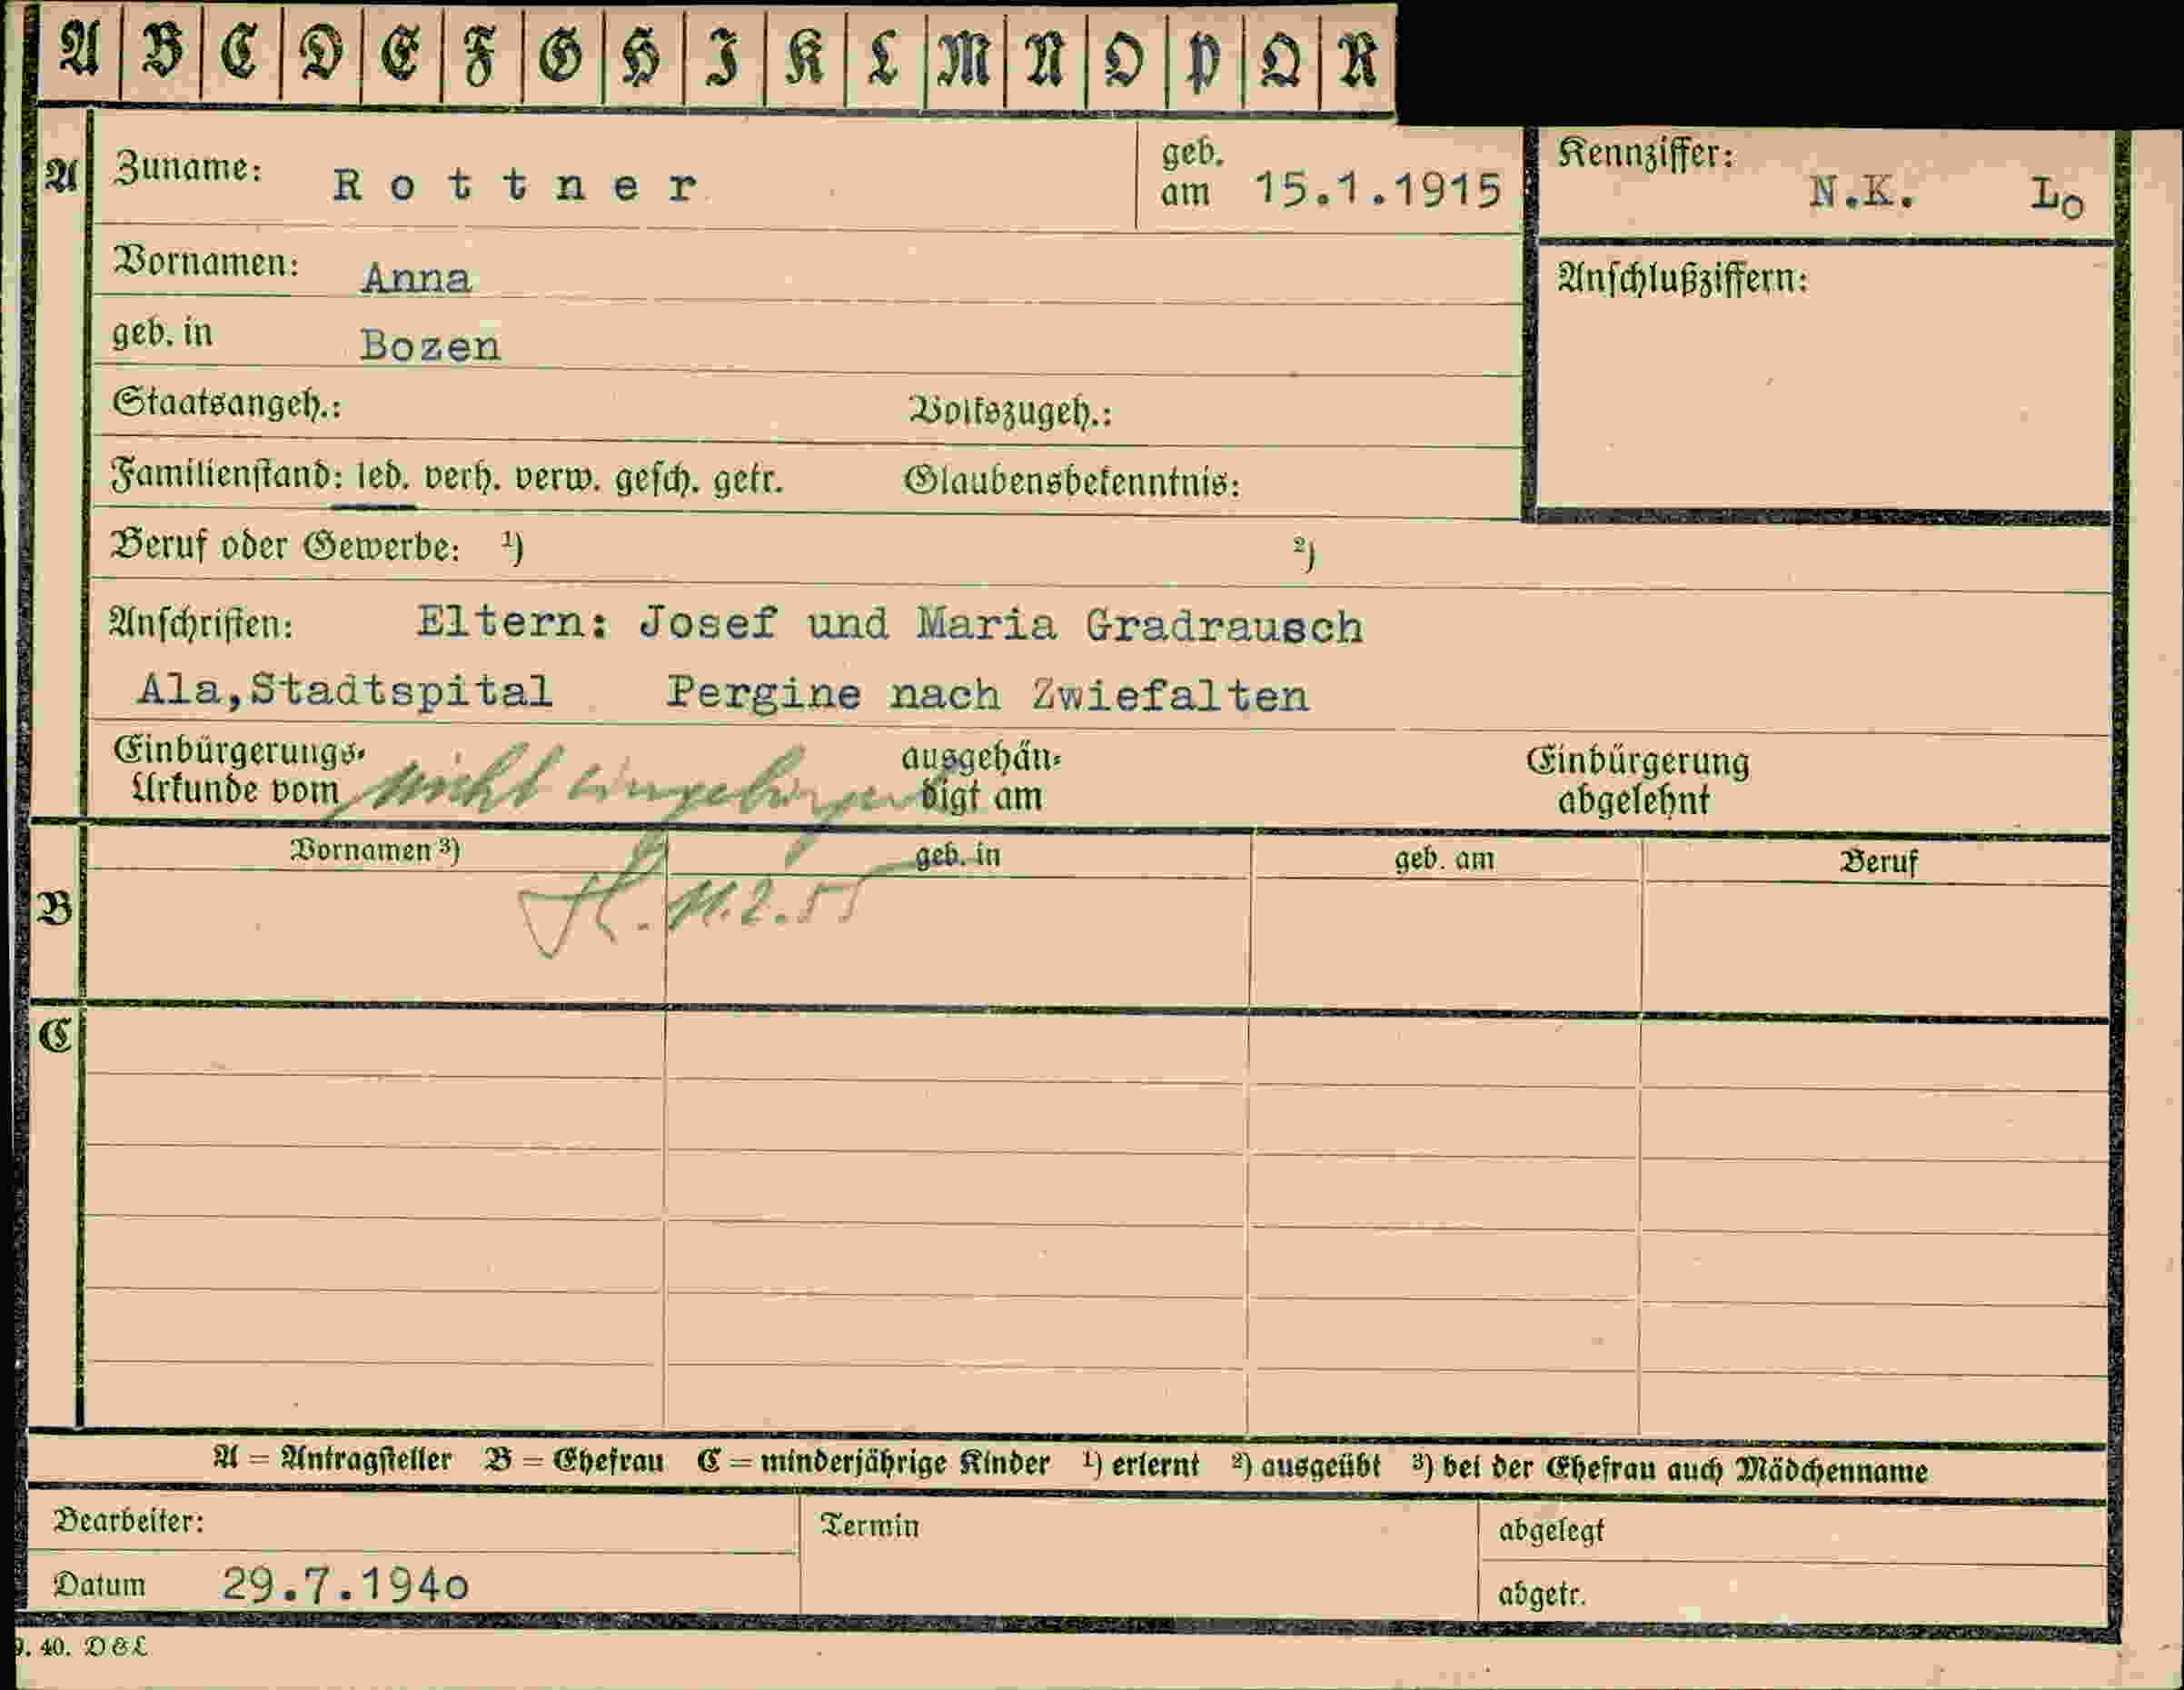 A B C D E F G H I K L M N O P Q R
A Zuname: Rottner geb. am 15.1.1915 Kennziffer: N.K. Lo
Vornamen: Anna Anschlußziffern:
geb. in Bozen
Staatsangeh.: Volkszugeh.:
Familienstand: led. verh. verw. gesch. getr. Glaubensbekenntnis:
Beruf oder Gewerbe: ¹) ²)
Anschriften: Eltern: Josef und Maria Gradrausch
Ala,Stadtspital Pergine nach Zwiefalten
Einbürgerungs- ausgehän- Einbürgerung
Urkunde vom nicht eingebürgert digt am abgelehnt
Vornamen ³) geb. in geb. am Beruf
B 11.2.55
C
A = Antragsteller B = Ehefrau C = minderjährige Kinder ¹) erlernt ²) ausgeübt ³) bei der Ehefrau auch Mädchenname
Bearbeiter: Termin abgelegt
Datum 29.7.194o abgetr.
9. 40. D & L